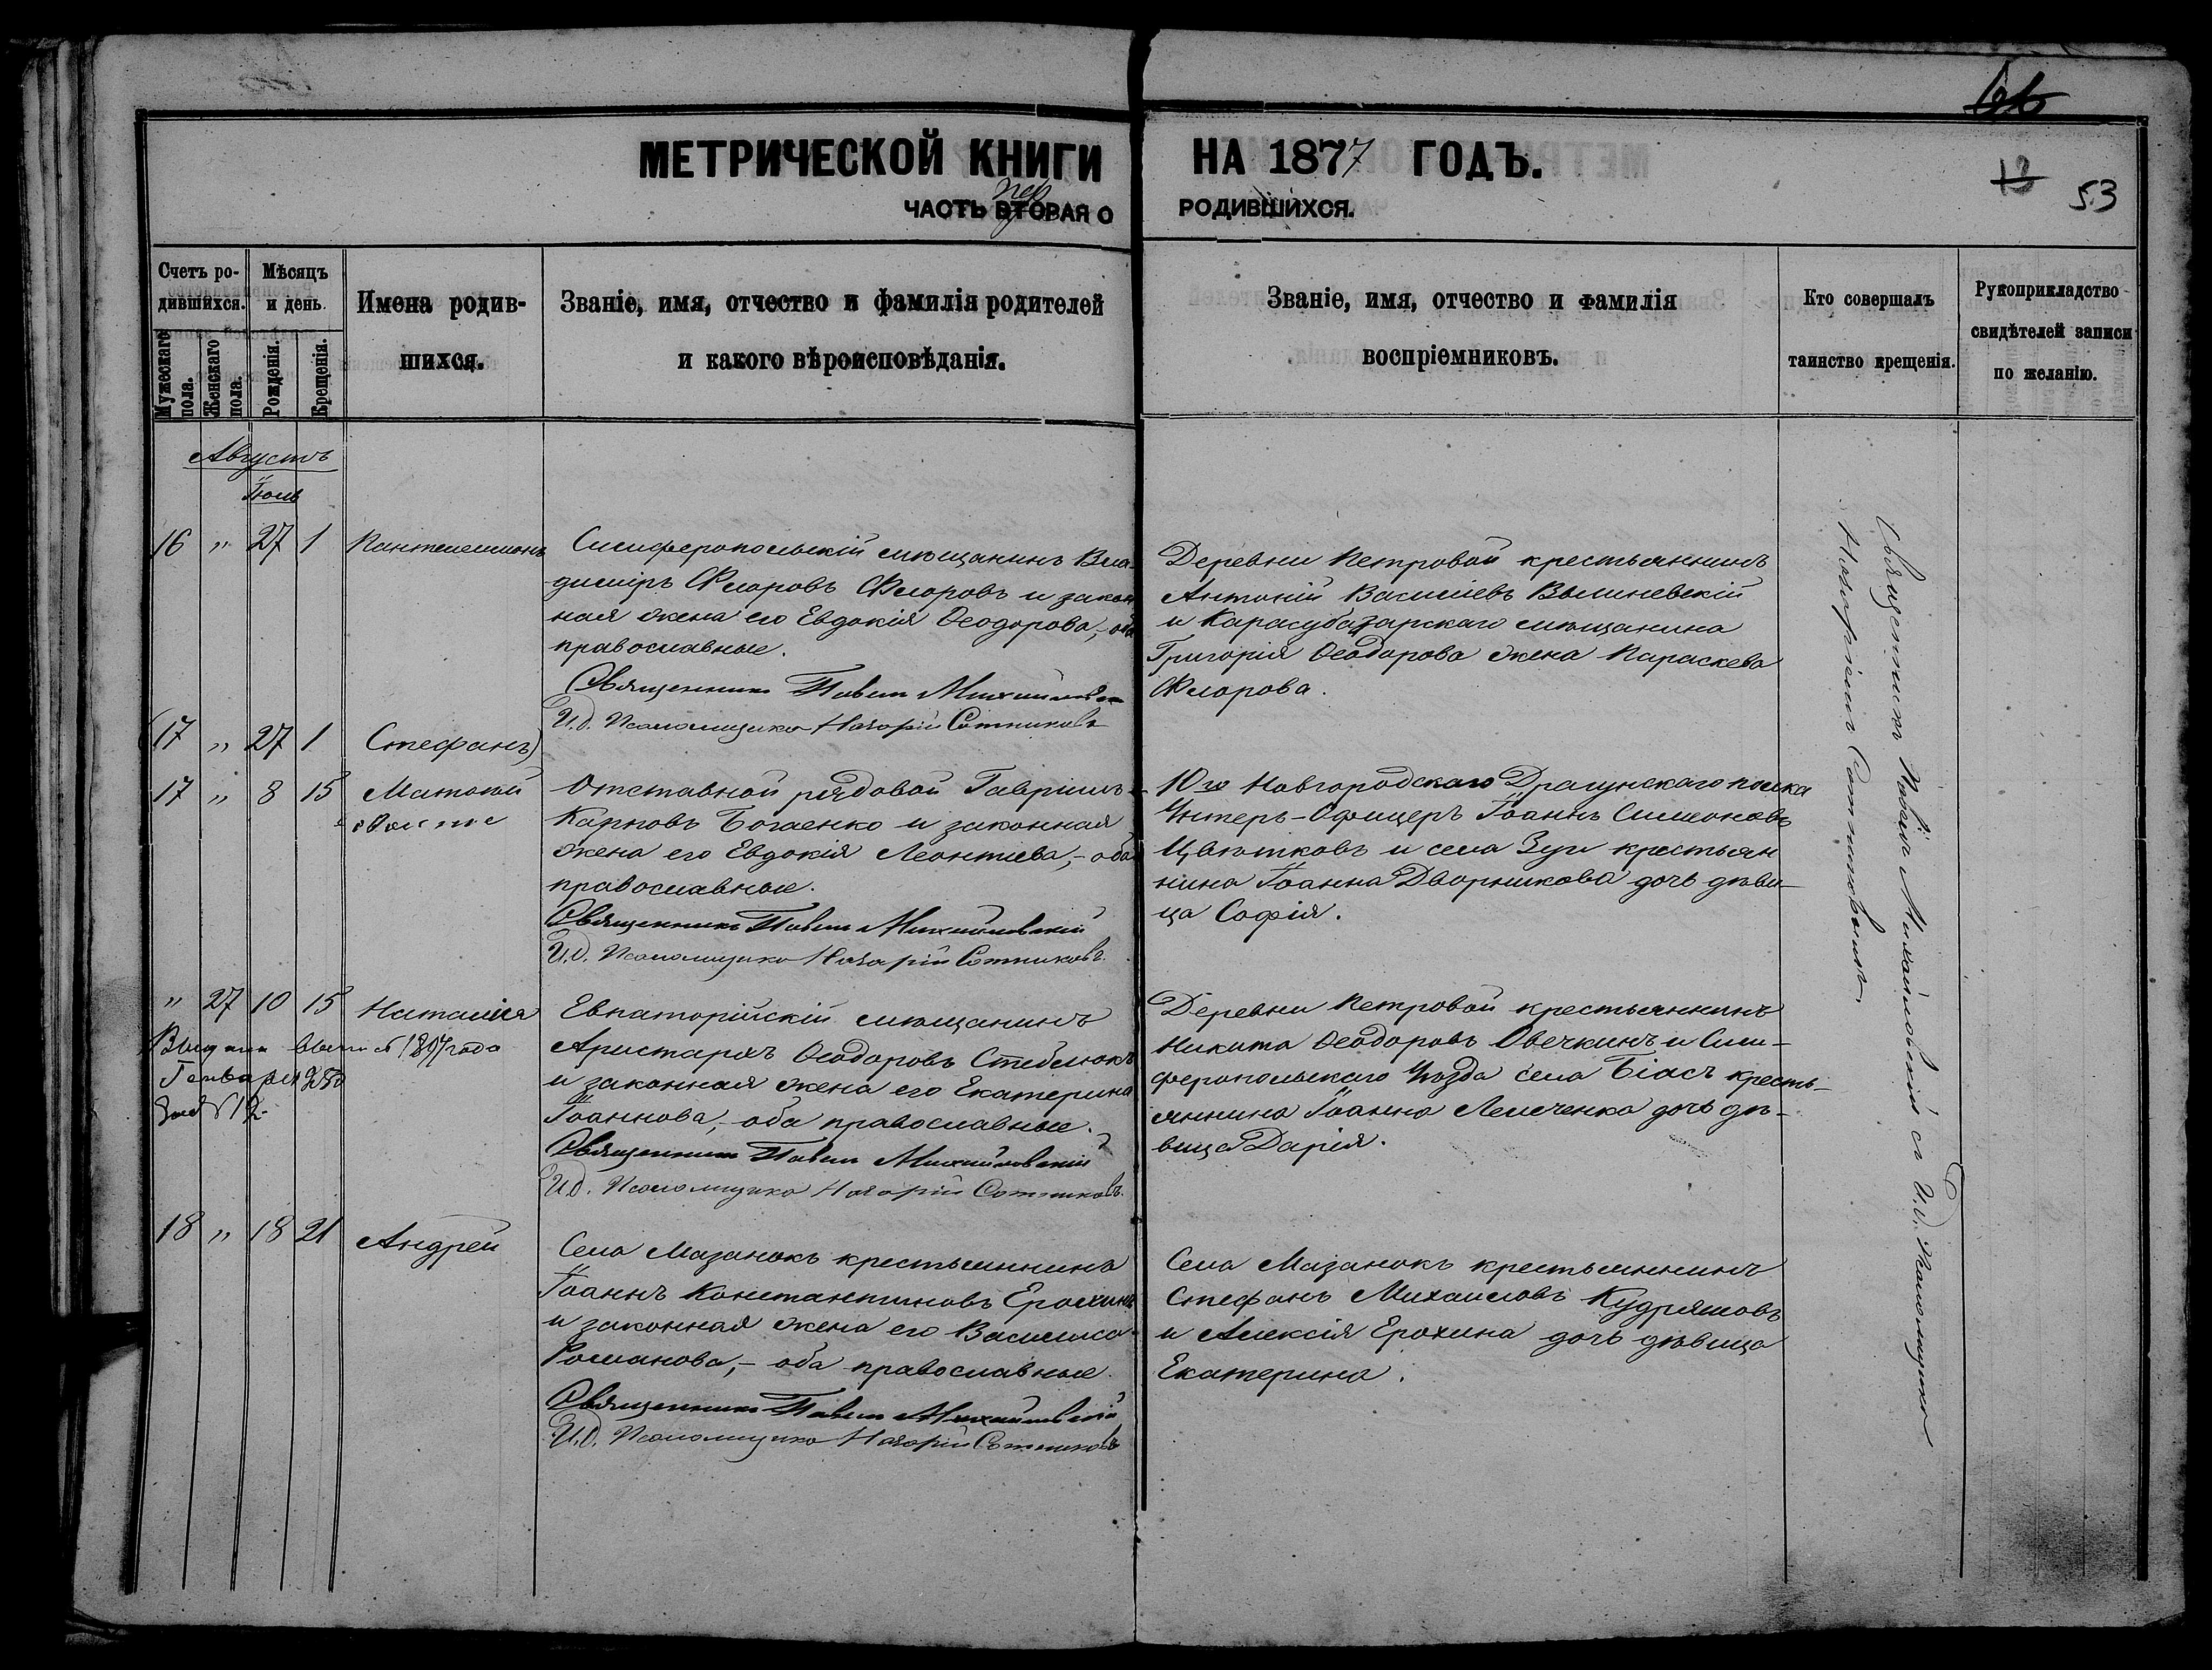 МЕТРИЧЕСКОЙ КНИГИ НА 1877 ГОДЪ.
53
ЧАСТЬ ВТОРАЯ О РОДИВШИХСЯ.
пер
Счетъ ро-
дившихся.
Мужескаго пола.
Женскаго пола.
Мѣсяцъ
и день.
Рожденія.
Крещенія.
Имена родив-
шихся.
Званіе, имя, отчество и фамилія родителей
и какого вѣроисповѣданія.
Званіе, имя, отчество и фамилія
воспріемниковъ.
Кто совершалъ
таинство крещенія.
Рукоприкладство
свидѣтелей записи
по желанію.
Августъ
Іюль
16 " 27 1 Пантелеимонъ
Симферопольскій мѣщанинъ Вла-
димиръ Флоровъ Флоровъ и закон
ная жена его Евдокія Ѳеодорова, - оба
православные.
Священникъ Павелъ Михайловскій
И.д. Псаломщика Назарій Сотниковъ
Деревни Петровой крестьянинъ
Антоній Василіевъ Вышневскій
и Карасубазарскаго мѣщанина
Григорія Ѳеодорова жена Параскева
Флорова.
(17 " 27 1 Стефанъ)
17 " 8 15 Матѳей
Отставной рядовой Гавріилъ
Карповъ Богаенко и законная
жена его Евдокія Леонтіева, - оба
православные.
Священникъ Павелъ Михайловскій
И.д. Псаломщика Назарій Сотниковъ.
10го Новгородскаго Драгунскаго полка
Унтеръ-Офицеръ Іоаннъ Симоновъ
Цвѣтковъ и села Зуи крестьян
нина Іоанна Дворникова дочь дѣви-
ца Софія.
" 27 10 15 Наталія
Евпаторійскій мѣщанинъ
Аристархъ Ѳеодоровъ Стеблюкъ
и законная жена его Екатерина
Іоаннова, - оба православные.
Священникъ Павелъ Михайловскій
И.д. Псаломщика Назарій Сотниковъ.
Деревни Петровой крестьянинъ
Никита Ѳеодоровъ Овечкинъ и Сим-
феропольскаго Уѣзда села Біасъ кресть-
янина Іоанна Лемченка дочь дѣ-
вица Дарія.
18 " 18 21 Андрей
Села Мазанокъ крестьянинъ
Іоаннъ Константиновъ Ерохинъ
и законная жена его Василиса
Романова, - оба православные.
Священникъ Павелъ Михайловскій
И.д. Псаломщика Назарій Сотниковъ
Села Мазанокъ крестьянинъ
Стефанъ Михаиловъ Кудряшовъ
и Алексія Ерохина дочь дѣвица
Екатерина.
Священникъ Павелъ Михайловскій съ И.д. Псаломщика
Назаріемъ Сотниковымъ.